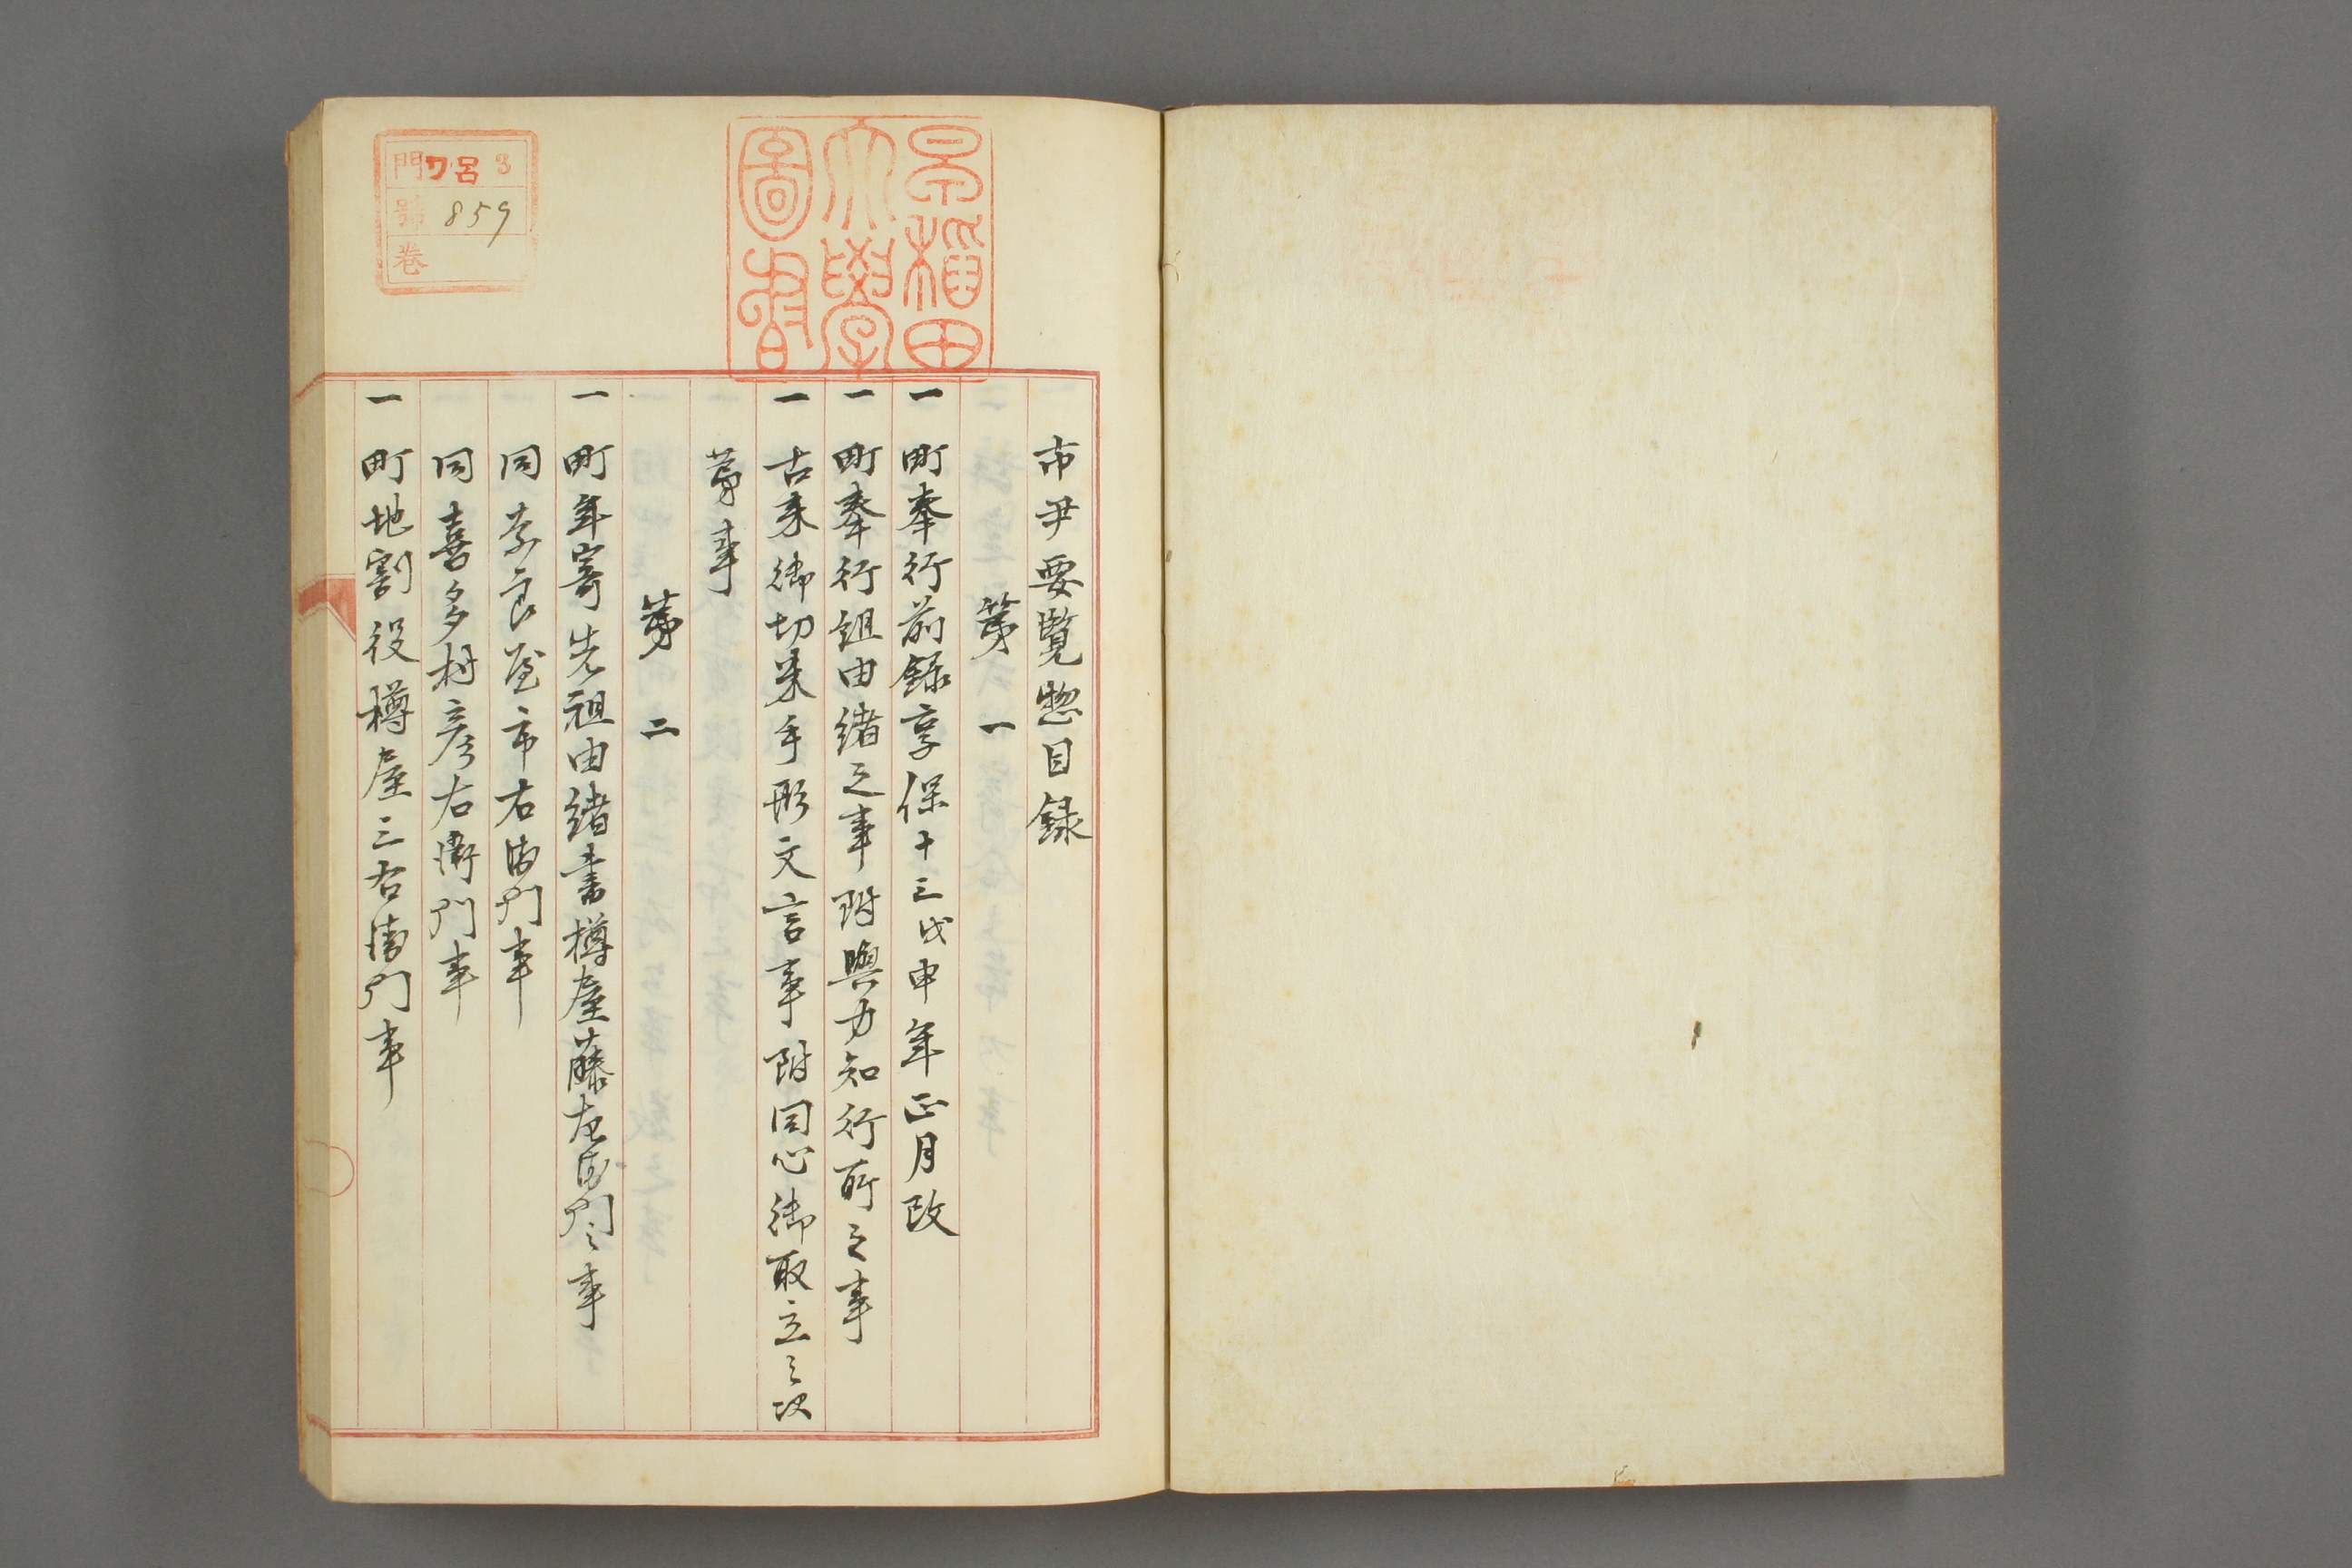 市尹要覧惣目録
第一
一 町奉行前録享保十三戊申年正月改
一 町奉行組由緒之事附與力知行所之事
一 古来御切米手形文言事附同心御取立之次
第事
第二
一 町年寄先祖由緒書樽屋藤左衛門之事
同 奈良屋市右衛門事
同 喜多村彦右衛門事
一 町地割役樽屋三右衛門事
早稲田
大學
圖書
門 ワ呂 3
號 859
巻